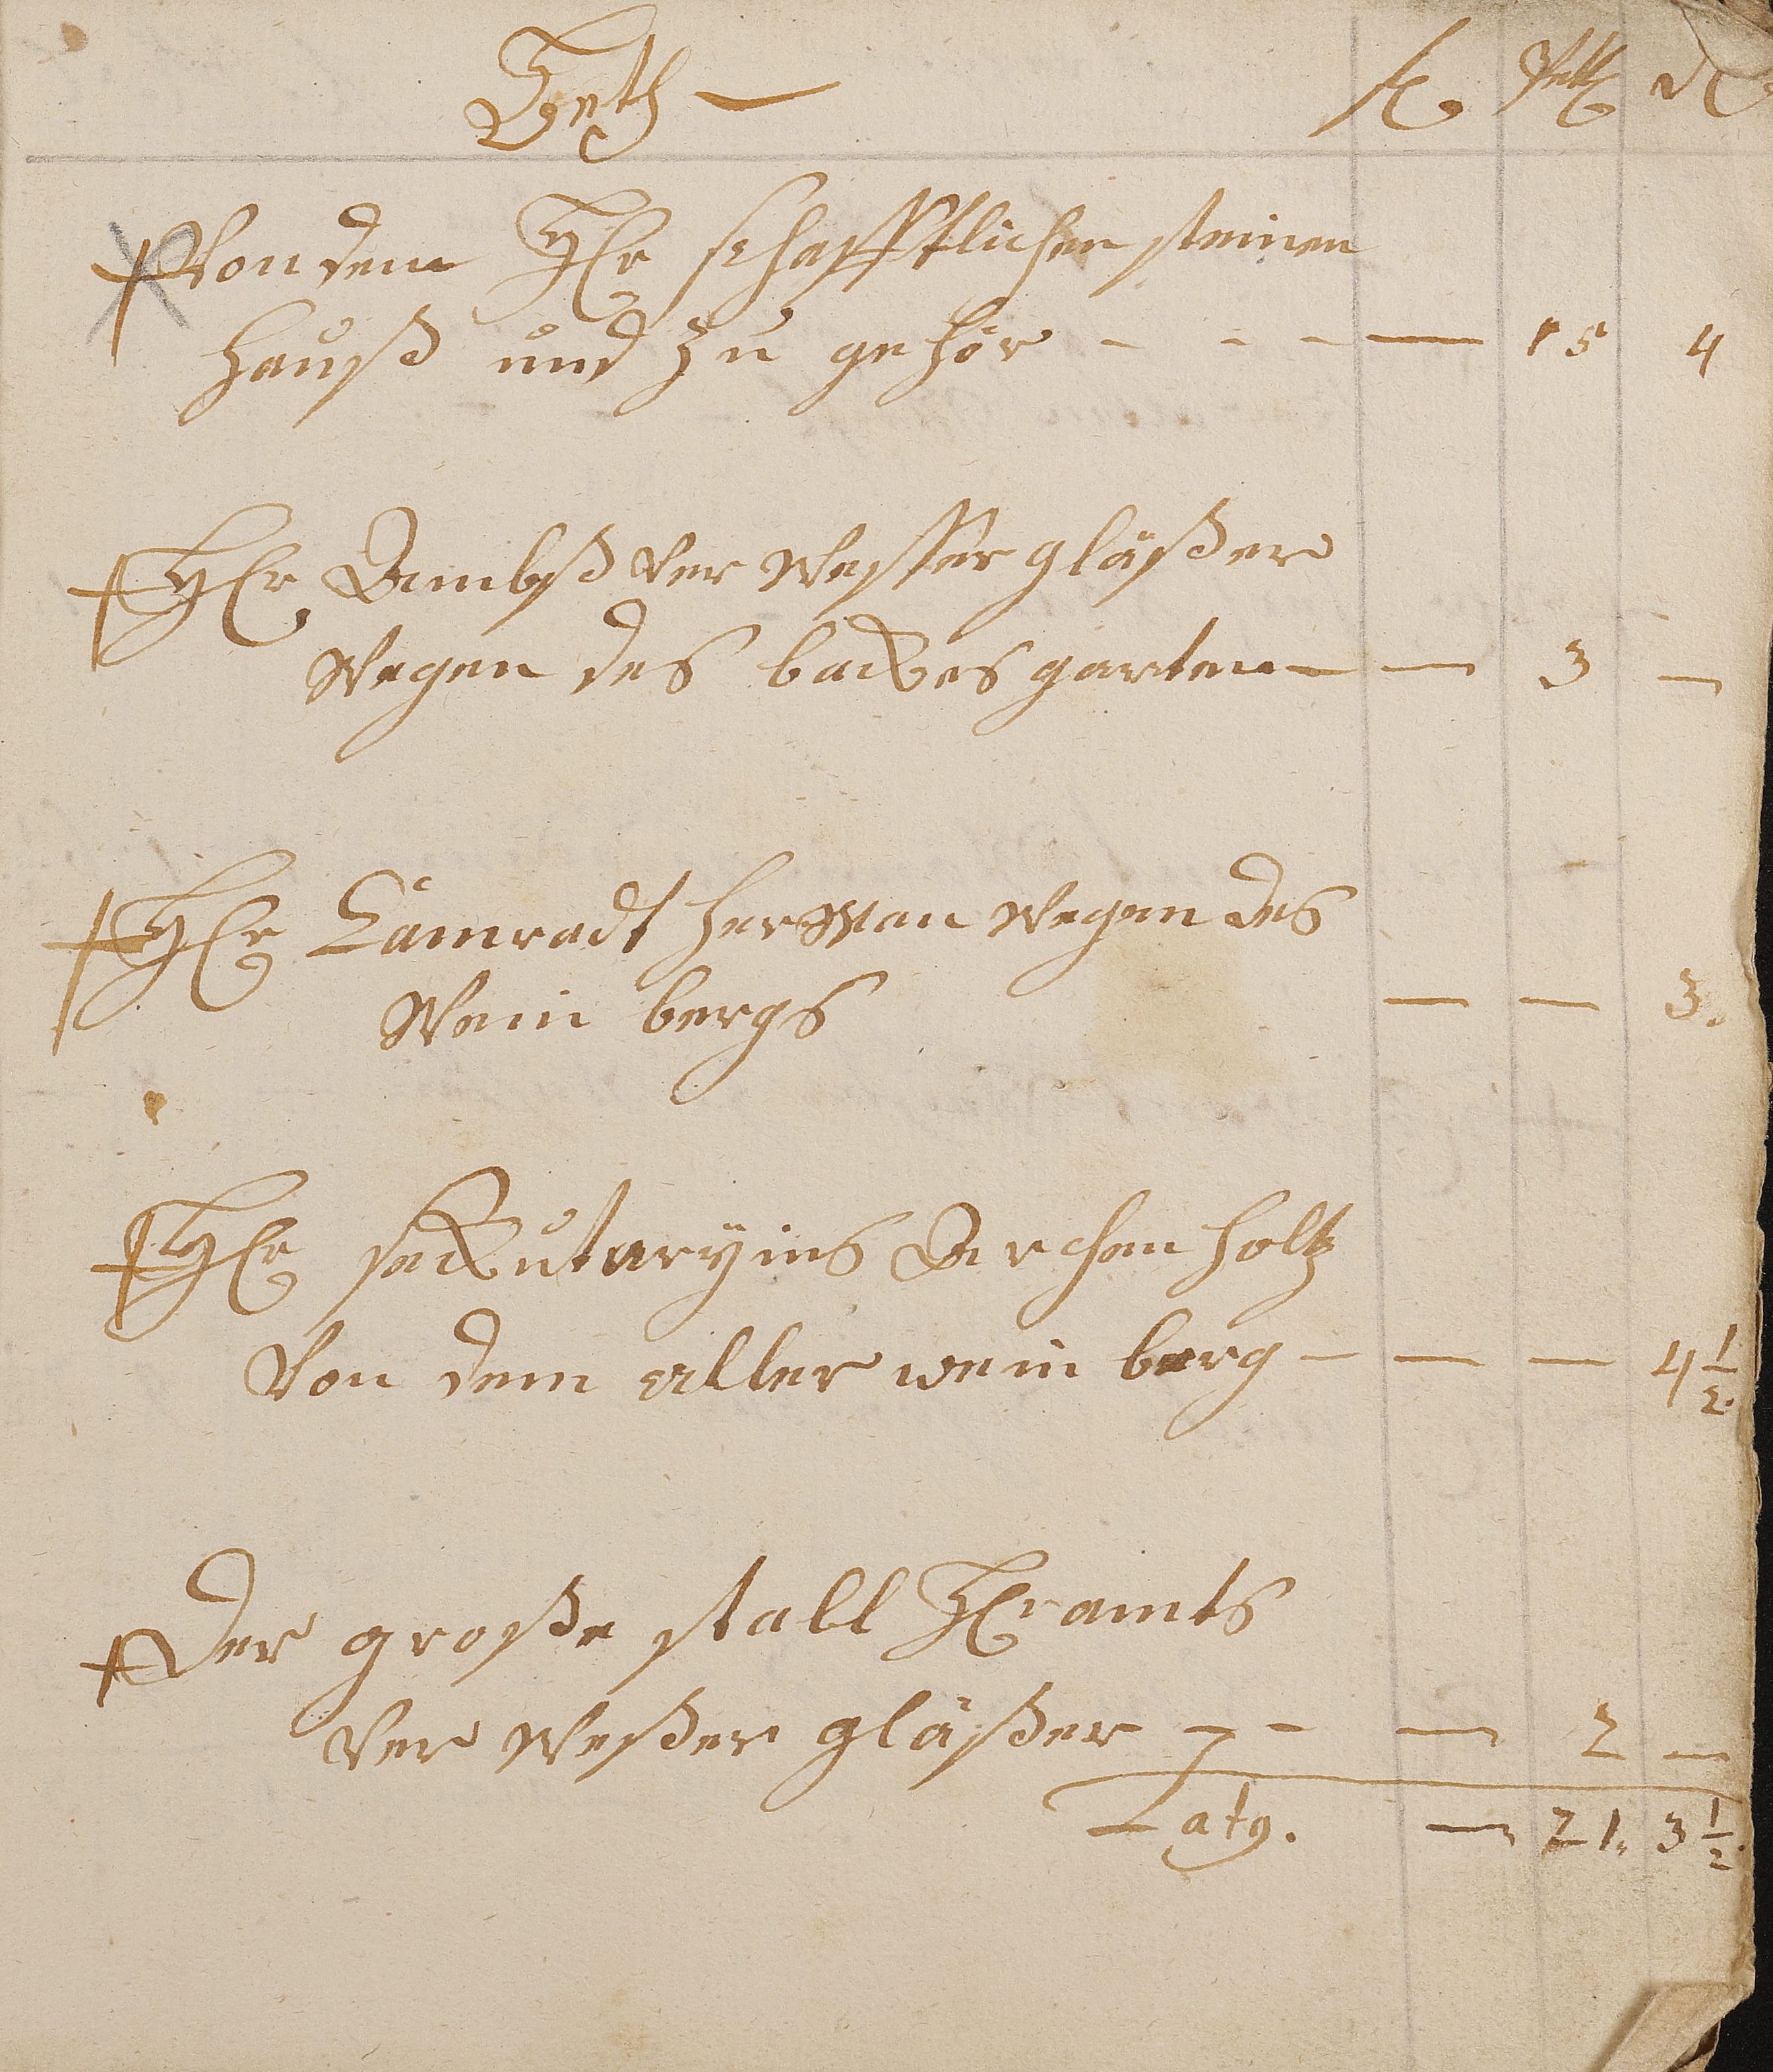 Beth — fl Btz d
Von dem HEr schafftlichen steinen
Hauß und zu gehör - - - — 15 4
HEr Ambß ver Wesser gläßer
Wegen des backes garten — — 3 —
HEr Cämradt HerMan Wegen des
Wein bergs — — 3.
HEr seckutaryius Archen holtz
Von dem aller wein berg — — — 4 1/2
Der große stall HEramts
ver Weßer gläßer - - — 2 —
Latg. — 21. 3 1/2